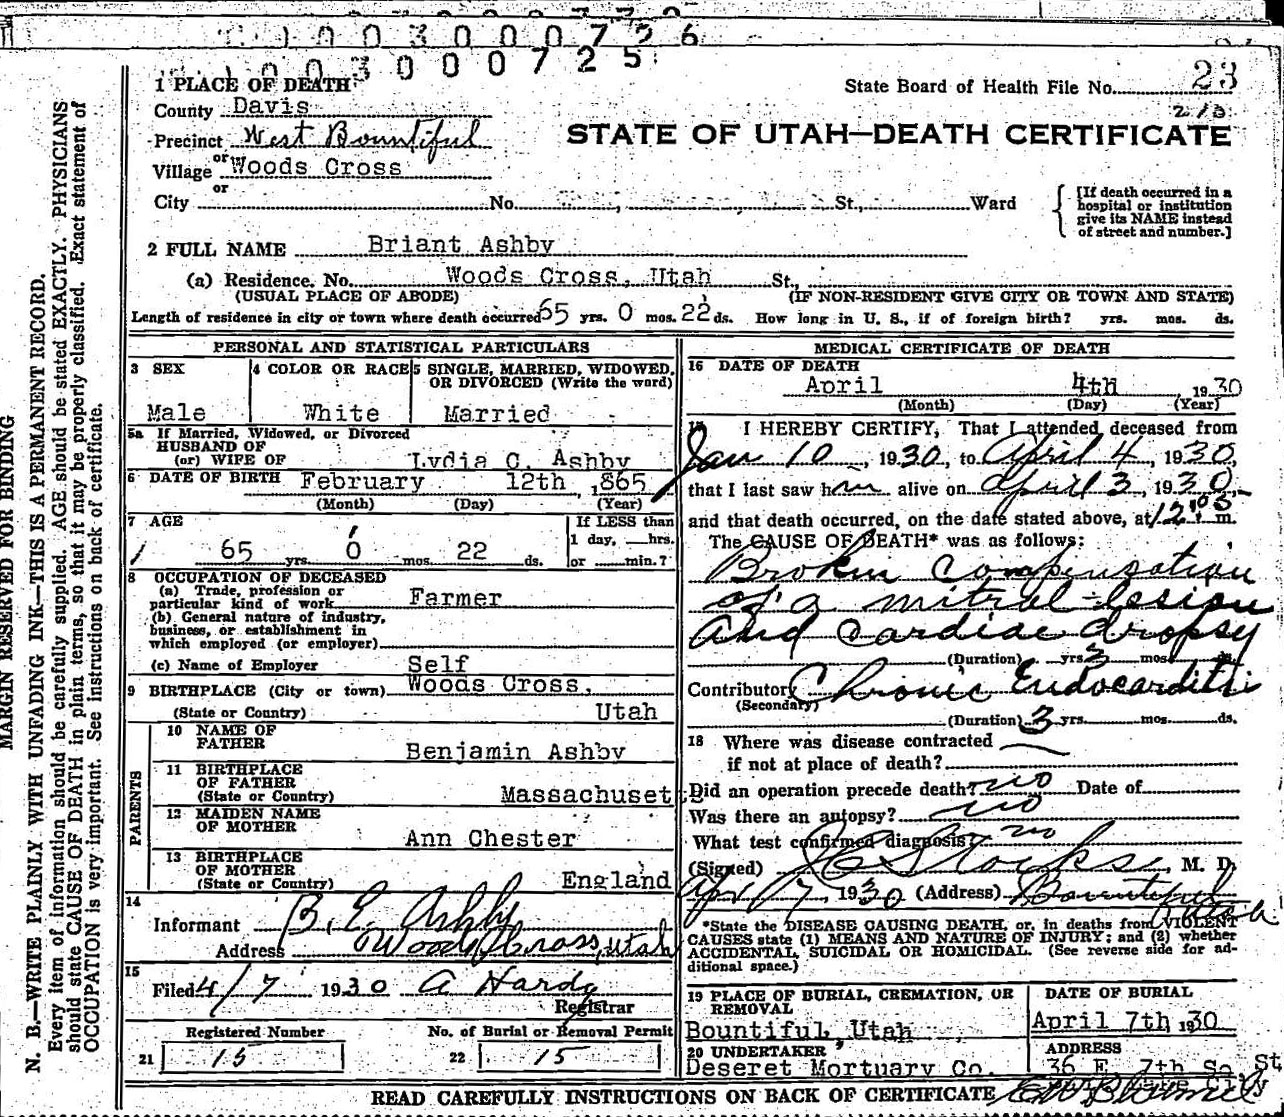 0003000726
1003000725
1 PLACE OF DEATH
State Board of Health File No. 23
213
County Davis
Precinct West Bountiful
STATE OF UTAH—DEATH CERTIFICATE
or
Village Woods Cross
or
City No. St., Ward
[If death occurred in a
hospital or institution
give its NAME instead
of street and number.]
2 FULL NAME Briant Ashby
(a) Residence. No. Woods Cross, Utah St.,
(USUAL PLACE OF ABODE) (IF NON-RESIDENT GIVE CITY OR TOWN AND STATE)
Length of residence in city or town where death occurred 65 yrs. 0 mos. 22 ds. How long in U. S., if of foreign birth? yrs. mos. ds.
PERSONAL AND STATISTICAL PARTICULARS
3 SEX
4 COLOR OR RACE
5 SINGLE, MARRIED, WIDOWED,
OR DIVORCED (Write the word)
Male White Married
5a If Married, Widowed, or Divorced
HUSBAND OF
(or) WIFE OF Lydia C. Ashby
6 DATE OF BIRTH February 12th, 1865
(Month) (Day) (Year)
7 AGE
If LESS than
1 day, hrs.
65 yrs. 0 mos. 22 ds. or min.?
8 OCCUPATION OF DECEASED
(a) Trade, profession or
particular kind of work Farmer
(b) General nature of industry,
business, or establishment in
which employed (or employer)
(c) Name of Employer Self
9 BIRTHPLACE (City or town) Woods Cross,
(State or Country) Utah
PARENTS
10 NAME OF
FATHER Benjamin Ashby
11 BIRTHPLACE
OF FATHER
(State or Country) Massachuset
12 MAIDEN NAME
OF MOTHER Ann Chester
13 BIRTHPLACE
OF MOTHER
(State or Country) England
14
Informant B. E. Ashby
Address Woods Cross, Utah
15
Filed 4/7 1930 A Hardy
Registrar
Registered Number No. of Burial or Removal Permit
21 15 22 15
MEDICAL CERTIFICATE OF DEATH
16 DATE OF DEATH
April 4th 1930
(Month) (Day) (Year)
17 I HEREBY CERTIFY, That I attended deceased from
Jan 10, 1930, to April 4, 1930,
that I last saw him alive on April 3, 1930,
and that death occurred, on the date stated above, at 12:05 m.
The CAUSE OF DEATH* was as follows:
Broken compensation
of a mitral lesion
and cardiac dropsy
(Duration) yrs. 3 mos. ds.
Contributory Chronic Endocarditis
(Secondary)
(Duration) 3 yrs. mos. ds.
18 Where was disease contracted
if not at place of death?
Did an operation precede death? no Date of
Was there an autopsy? no
What test confirmed diagnosis? no
(Signed) Stocks, M. D.
Apr 7 1930 (Address) Bountiful
Utah
*State the DISEASE CAUSING DEATH, or, in deaths from VIOLENT
CAUSES state (1) MEANS AND NATURE OF INJURY; and (2) whether
ACCIDENTAL, SUICIDAL OR HOMICIDAL. (See reverse side for ad-
ditional space.)
19 PLACE OF BURIAL, CREMATION, OR
REMOVAL
Bountiful, Utah
DATE OF BURIAL
April 7th 1930
20 UNDERTAKER
Deseret Mortuary Co.
ADDRESS
36 E. 7th So. St
READ CAREFULLY INSTRUCTIONS ON BACK OF CERTIFICATE
MARGIN RESERVED FOR BINDING
N. B.—WRITE PLAINLY WITH UNFADING INK—THIS IS A PERMANENT RECORD.
Every item of information should be carefully supplied. AGE should be stated EXACTLY. PHYSICIANS
should state CAUSE OF DEATH in plain terms, so that it may be properly classified. Exact statement of
OCCUPATION is very important. See instructions on back of certificate.